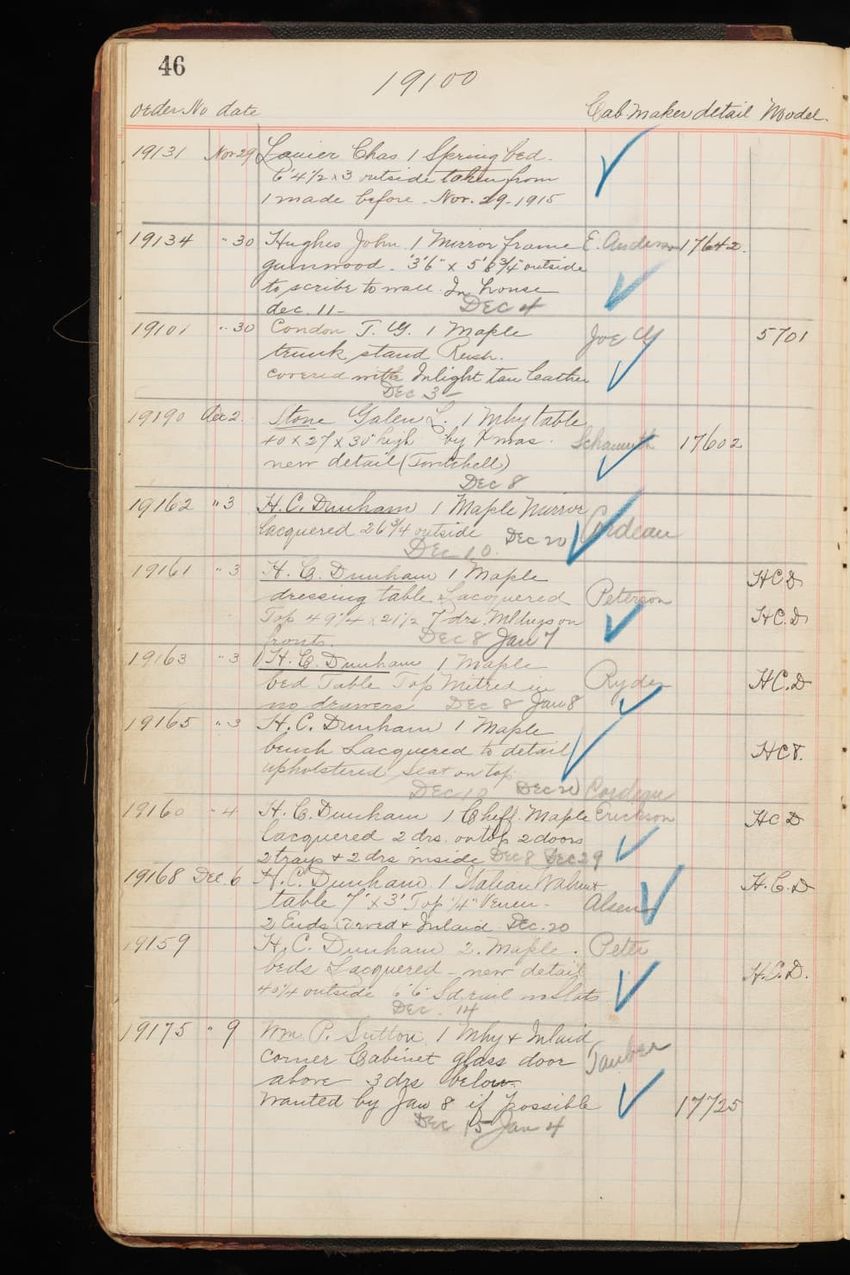 46
19100
Order No date Cab Maker detail Model.
19131 Nov 29 Lanier Chas 1 Spring bed.
6'4 1/2 x 3 outside taken from
1 made before Nov. 29-1915
19134 " 30 Hughes John 1 Mirror frame E. Anderson 17642.
gumwood. 3'6" x 5'8 3/4" outside
to scribe to wall. In house
dec. 11- DEC 4
19101 " 30 Condon T. G. 1 Maple Joe 5701
trunk stand Rush.
covered with Inlight tan leather
DEC 3
19190 Dec 2. Stone Galen L. 1 Mhy table
40 x 27 x 30" high by Xmas. 17602
new detail (Twitchell)
DEC 8
19162 " 3 H. C. Dunham 1 Maple Mirror
lacquered 26 3/4 outside DEC 20 Cordeau
DEC 10.
19161 " 3 H. C. Dunham 1 Maple HCD
dressing table Lacquered Peterson
Top 49 1/4 x 21 1/2 7 drs. on HC.D
fronts. DEC 8 Jan 7
19163 " 3 H. C. Dunham 1 Maple
bed Table Top Mitred in Ryder HC.D
no drawers DEC 8 Jan 8
19165 " 3 H. C. Dunham 1 Maple
bench Lacquered to detail
upholstered seat on top.
DEC 10 DEC 20 Cordeau
19160 " 4 H. C. Dunham 1 Cheff. Maple Erickson HCD
lacquered 2 drs. on top 2 doors
2 trays & 2 drs inside DEC 8 DEC 29
19168 Dec. 6 H. C. Dunham 1 Italian Walnut H.C.D
table 7' x 3' Top 1/4" Veneer- Alsen
2 Ends Carved & Inlaid DEC. 20
19159 H. C. Dunham 2 Maple. Peter
beds Lacquered - new detail H.C.D.
40 1/4 outside 6'6" Sd rail no Slats
DEC. 14
19175 " 9 Wm. P. Sutton 1 Mhy & Inlaid
corner Cabinet glass door Tauber
above 3 drs below.
Wanted by Jan 8 if possible 17725
DEC 15 Jan 4